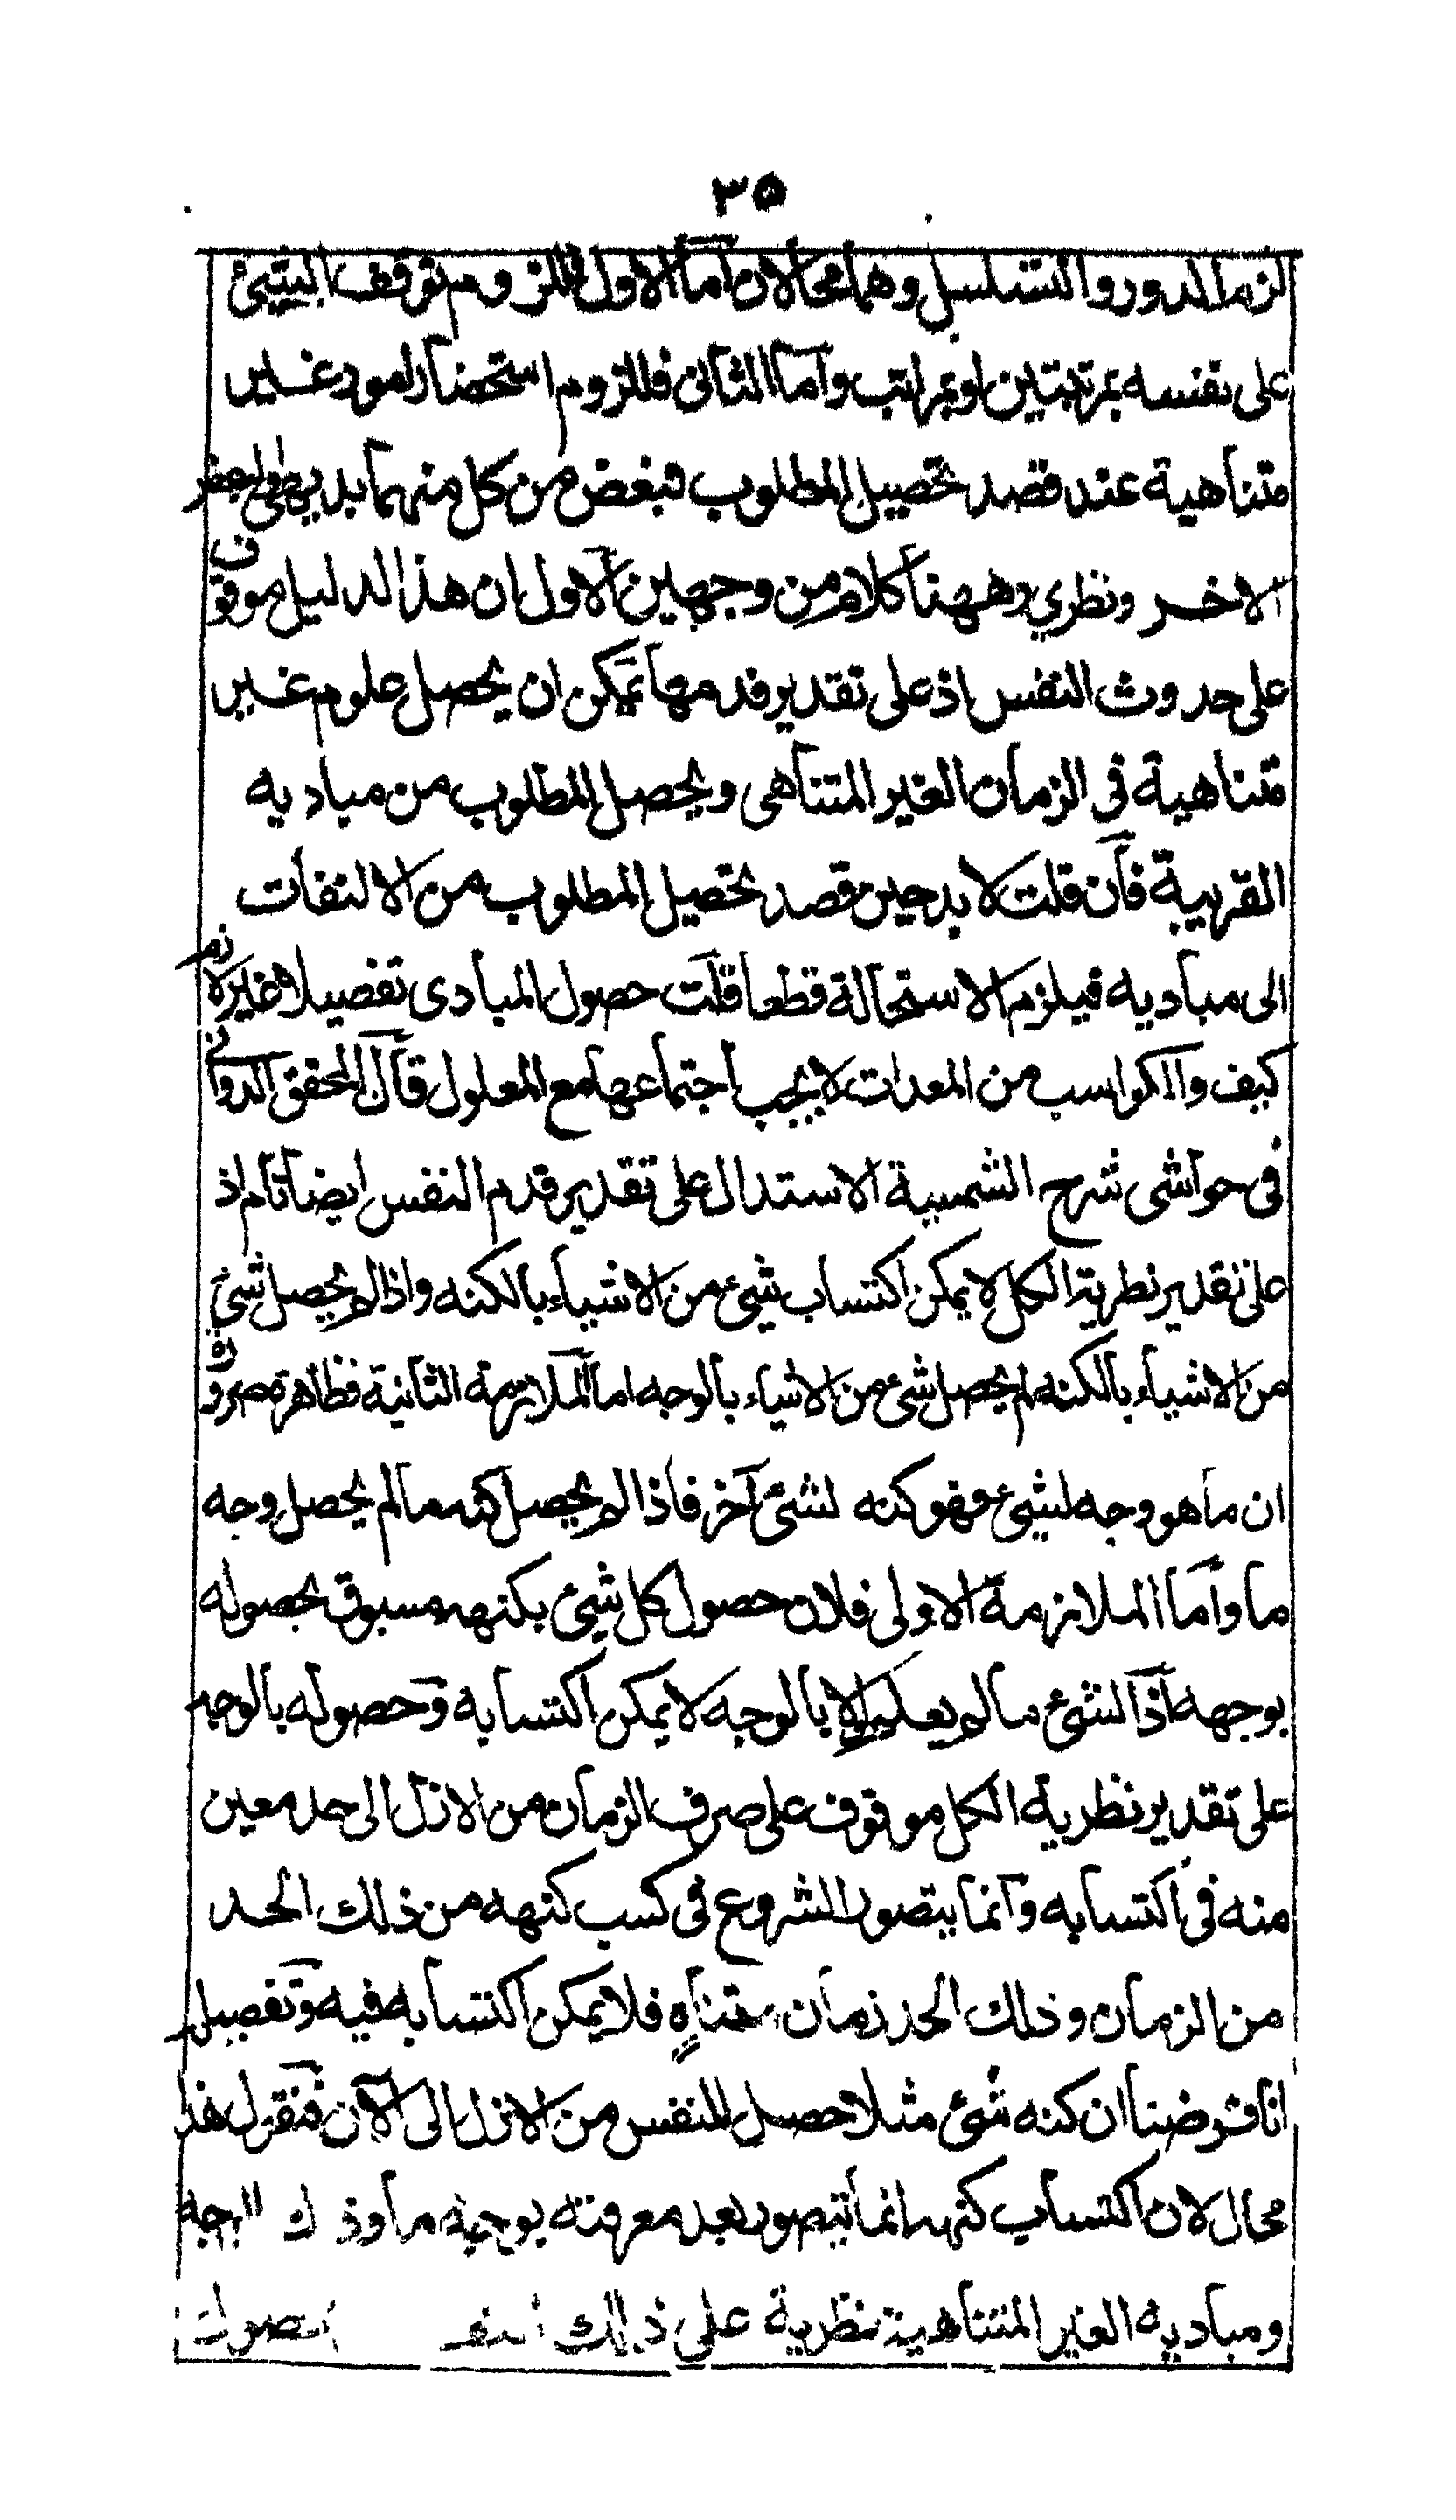 ٣٥
لزم الدور والتسلسل وهما محالان اما الاول فللزوم توقف الشئ
على نفسه بمرتبتين او بمراتب واما الثانى فللزوم استحضار امور غير
متناهية عند قصد تحصيل المطلوب فبعض من كل منهما بديهى والبعض
الاخر نظري وههنا كلام من وجهين الاول ان هذا الدليل موقوف
على حدوث النفس اذ على تقدير قدمها يمكن ان يحصل علوم غير
متناهية فى الزمان الغير المتناهى ويحصل المطلوب من مباديه
القريبة فان قلت لا بد حين قصد تحصيل المطلوب من الالتفات
الى مباديه فيلزم الاستحالة قطعا قلت حصول المبادى تفصيلا غير لازم
كيف والكواسب من المعدات لا يجب اجتماعها مع المعلول قال المحقق الدوانى
فى حواشى شرح الشمسية الاستدلال على تقدير قدم النفس ايضا تام اذ
على تقدير نظرية الكل لا يمكن اكتساب شئ من الاشياء بالكنه واذا لم يحصل شئ
من الاشياء بالكنه لم يحصل شئ من الاشياء بالوجه اما الملازمة الثانية فظاهرة ضرورة
ان ما هو وجه لشئ فهو كنه لشئ آخر فاذا لم يحصل كنه ما لم يحصل وجه
ما واما الملازمة الاولى فلان حصول كل شئ بكنهه مسبوق بحصوله
بوجهه اذ الشئ ما لم يعلم الا بالوجه لا يمكن اكتسابه وحصوله بالوجه
على تقدير نظرية الكل موقوف على صرف الزمان من الازل الى حد معين
منه فى اكتسابه وانما يتصور الشروع فى كسب كنهه من ذلك الحد
من الزمان وذلك الحد زمان متناهٍ فلا يمكن اكتسابه فيه وتفصيله
انا فرضنا ان كنه شئ مثلا حصل للنفس من الازل الى الآن فنقول هذا
محال لان اكتساب كنهه انما يتصور بعد معرفته بوجه ما وذلك الوجه
ومباديه الغير المتناهية نظرية على ذلك